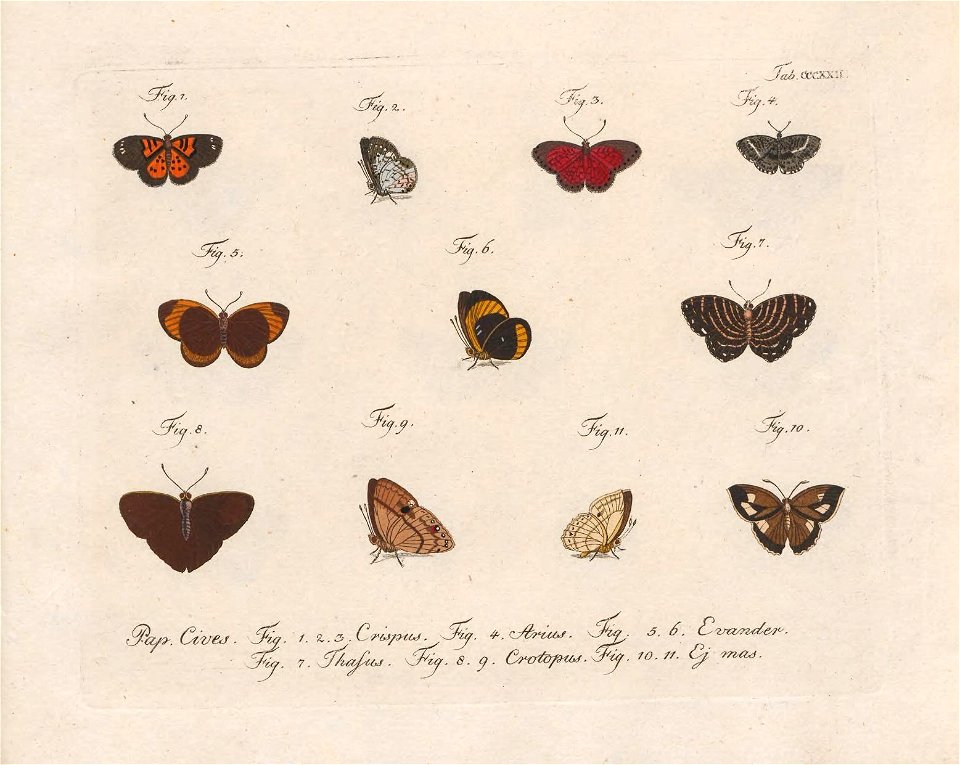 Tab. CCCXXII.
Fig. 1. Fig. 2. Fig. 3. Fig. 4.
Fig. 5. Fig. 6. Fig. 7.
Fig. 8. Fig. 9. Fig. 11. Fig. 10.
Pap. Cives. Fig. 1. 2. 3. Crispus. Fig. 4. Arius. Fig. 5. 6. Evander.
Fig. 7. Thaſus. Fig. 8. 9. Crotopus. Fig. 10. 11. Ej mas.